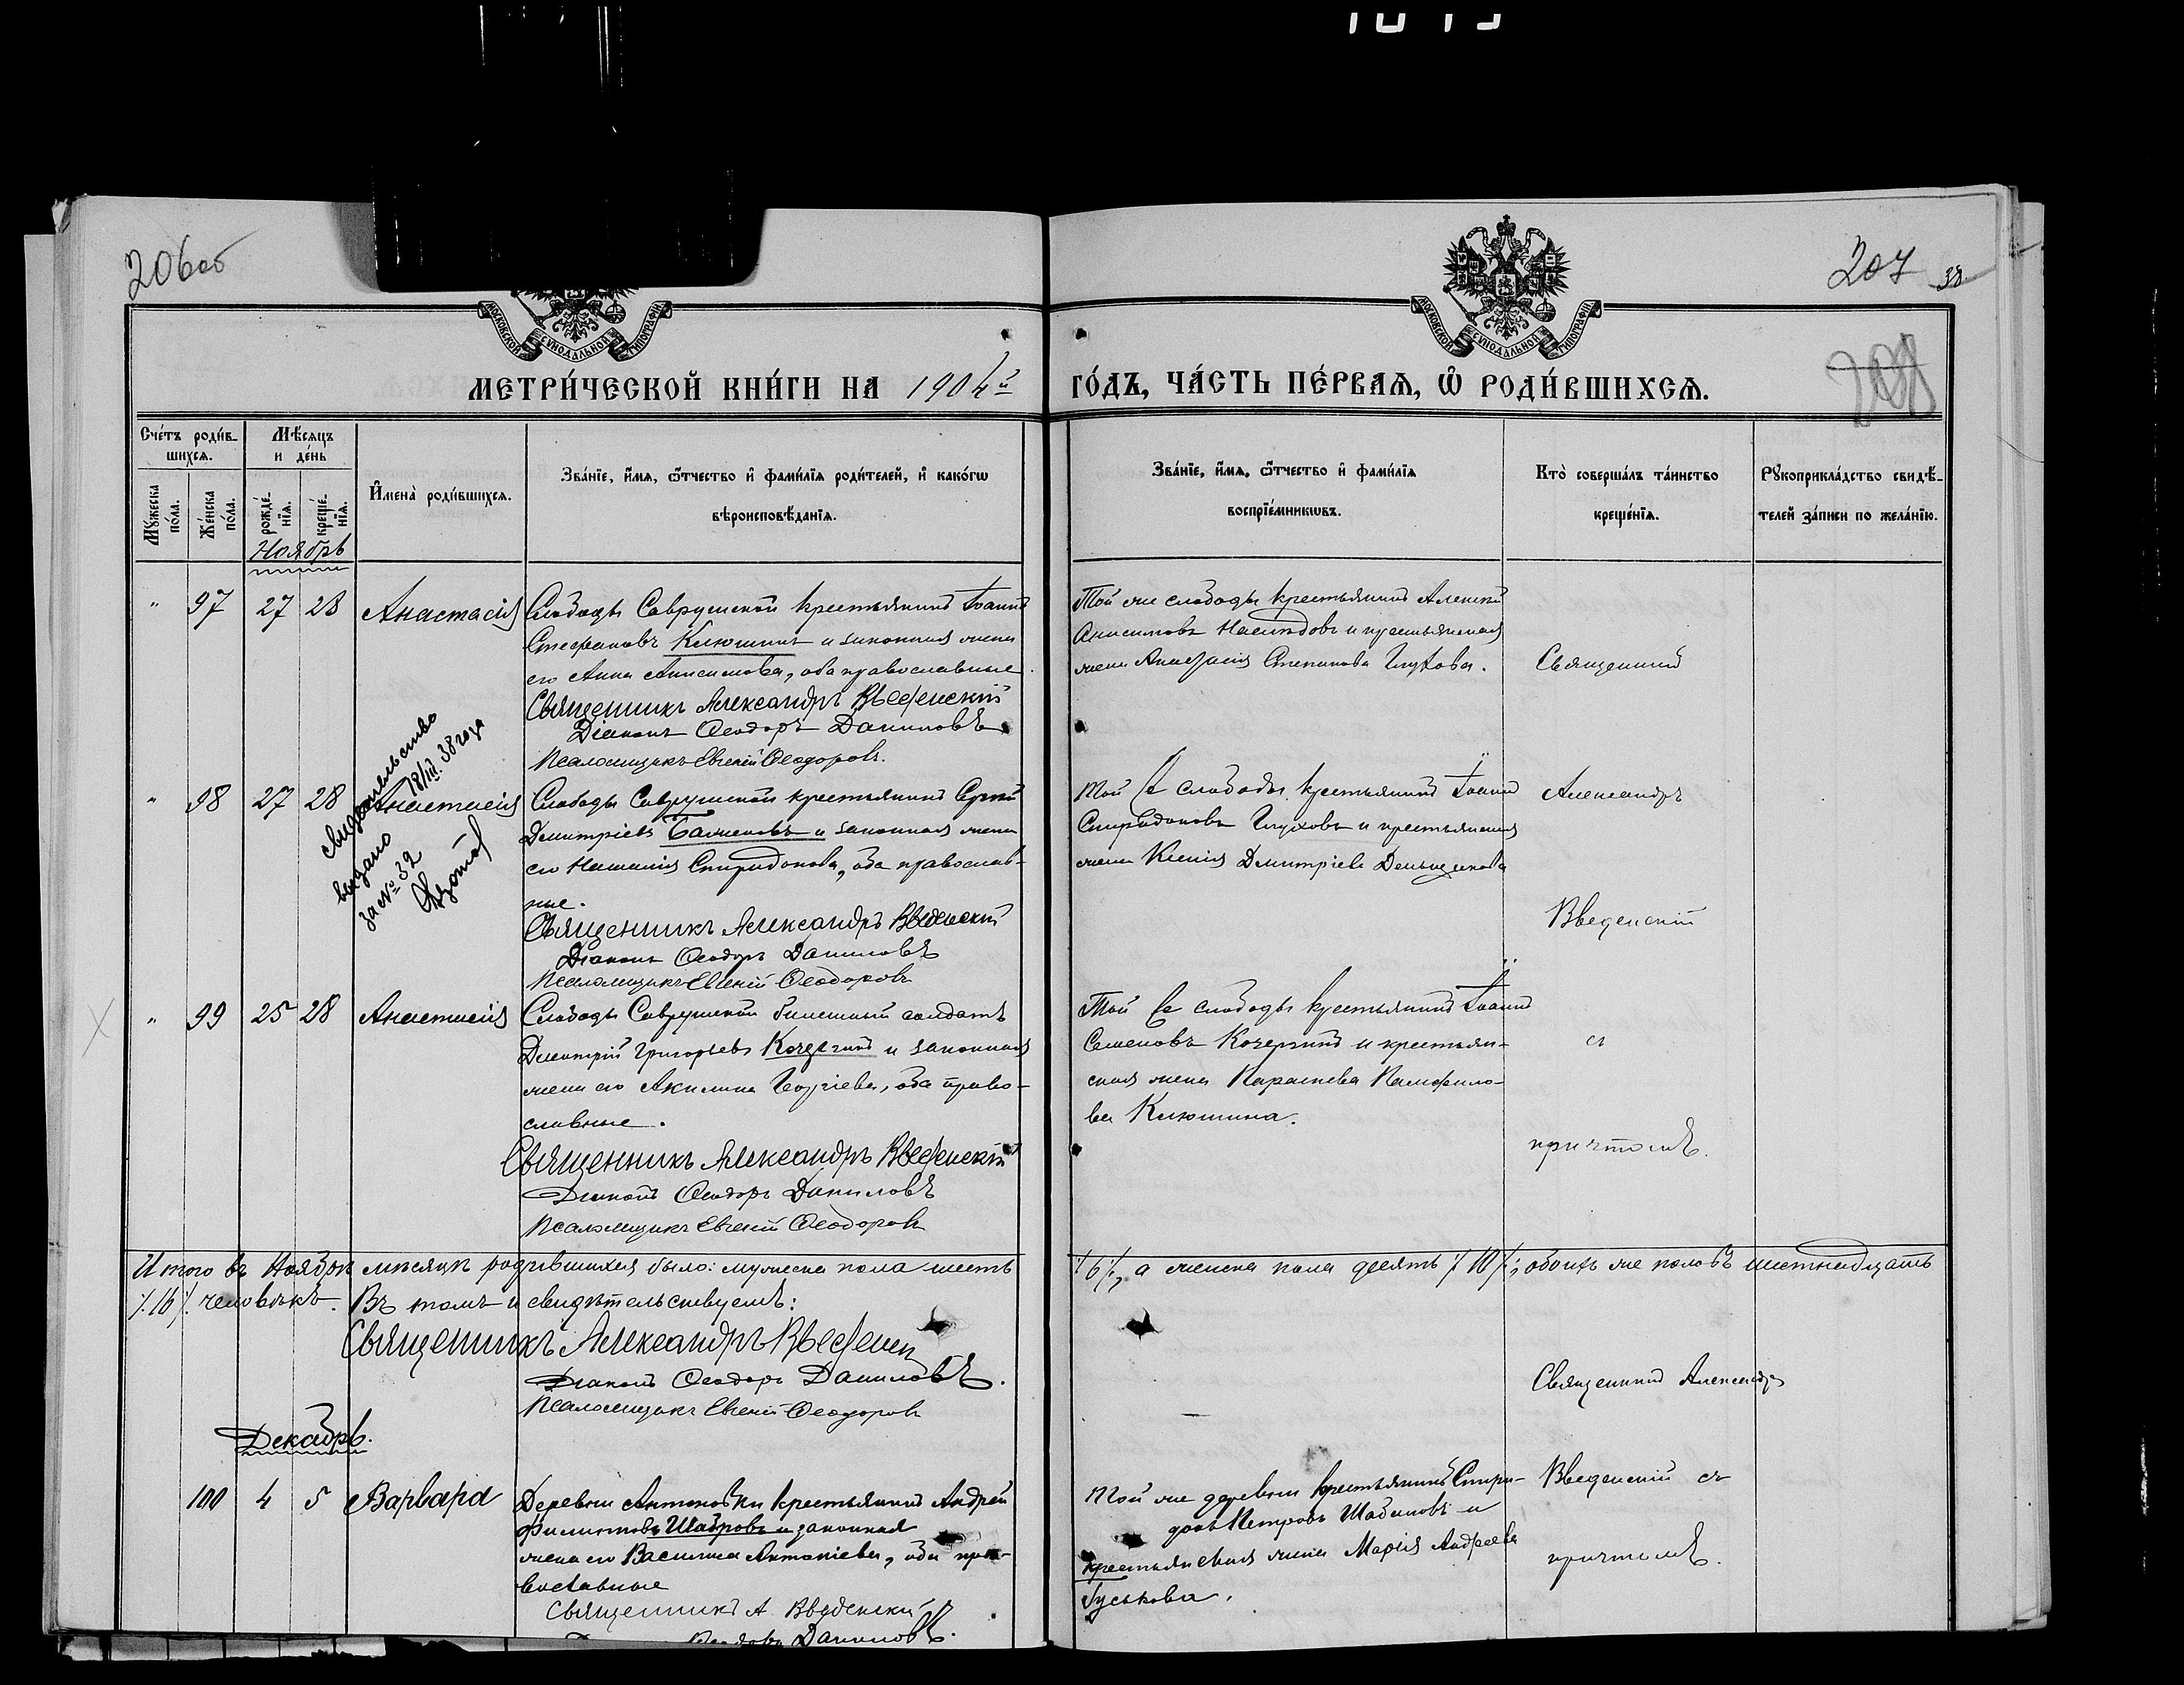 206об
207
38
МОСКОВСКОЙ СУНОДАЛЬНОЙ ТИПОГРАФІИ
МОСКОВСКОЙ СУНОДАЛЬНОЙ ТИПОГРАФІИ
МЕТРИ́ЧЕСКОЙ КНИ́ГИ НА 1904й ГО́ДЪ, ЧА́СТЬ ПЕ́РВАѦ, Ѡ҆ РОДИ́ВШИХСѦ.
Сче́тъ роди́в-
шихсѧ.
Мѣ́сѧцъ
и де́нь
Мꙋ́жеска по́ла.
Же́нска по́ла.
рожде́-
нїѧ.
креще́-
нїѧ.
И҆мена̀ роди́вшихсѧ.
Зва́нїе, и҆́мѧ, ѻ҆́тчество и҆ фами́лїѧ роди́телей, и҆ како́гѡ
вѣроисповѣ́данїѧ.
Зва́нїе, и҆́мѧ, ѻ҆́тчество и҆ фами́лїѧ
воспрїе́мникѡвъ.
Кто̀ соверша́лъ та́инство
креще́нїѧ.
Рꙋкоприкла́дство свидѣ́-
телей за́писи по жела́нїю.
Ноябрь
" 97 27 28 Анастасія Слободы Саврушской крестьянинъ Іоаннъ
Стефановъ Клюшинъ и законная жена
его Анна Анисимова, оба православные
Священникъ Александръ Введенскій
Діаконъ Ѳеодоръ Даниловъ
Псаломщикъ Евгеній Ѳеодоровъ.
Той же слободы крестьянинъ Алексѣй
Анисимовъ и крестьянская
жена Анастасія Степанова Глухова.
Священникъ
" 98 27 28 Анастасія Слободы Саврушской крестьянинъ Сергѣй
Дмитріевъ и законная жена
его Наталія Спиридонова, оба православ-
ные.
Священникъ Александръ Введенскій
Діаконъ Ѳеодоръ Даниловъ
Псаломщикъ Евгеній Ѳеодоровъ
свидетельство
выдано 18/III. 38 года
за № 32
Той же слободы крестьянинъ Іоаннъ
Спиридоновъ Глуховъ и крестьянская
жена Ксенія Дмитріева Деньщикова
Александръ
Введенскій
" 99 25 28 Анастасія Слободы Саврушской билетный солдатъ
Дмитрій Григорьевъ Кочергинъ и законная
жена его Акилина Георгіева, оба право-
славные.
Священникъ Александръ Введенскій
Діаконъ Ѳеодоръ Даниловъ
Псаломщикъ Евгеній Ѳеодоровъ
Той же слободы крестьянинъ Іоаннъ
Семеновъ Кочергинъ и крестьян-
ская жена Параскева Памфило-
ва Клюшина.
съ
причтомъ.
Итого въ Ноябрѣ мѣсяцѣ родившихся было: мужеска пола шесть ./.6./., а женска пола десять ./.10./.; обоихъ же половъ шестнадцать
./.16./. человѣкъ. Въ томъ и свидѣтельствуемъ:
Священникъ Александръ Введенск
Діаконъ Ѳеодоръ Даниловъ.
Псаломщикъ Евгеній Ѳеодоровъ
Священникъ Александръ
Декабрь.
100 4 5 Варвара Деревни Антоновки крестьянинъ Андрей
Филиповъ Шабровъ и законная
жена его Василиса Антоніева, оба пра-
вославные
Священникъ А Введенскій
Ѳеодоръ Даниловъ.
Той же деревни крестьянинъ Спири-
донъ Петровъ Шабановъ и
крестьянская жена Марія Андреева
Гуськова.
Введенскій съ
причтомъ.